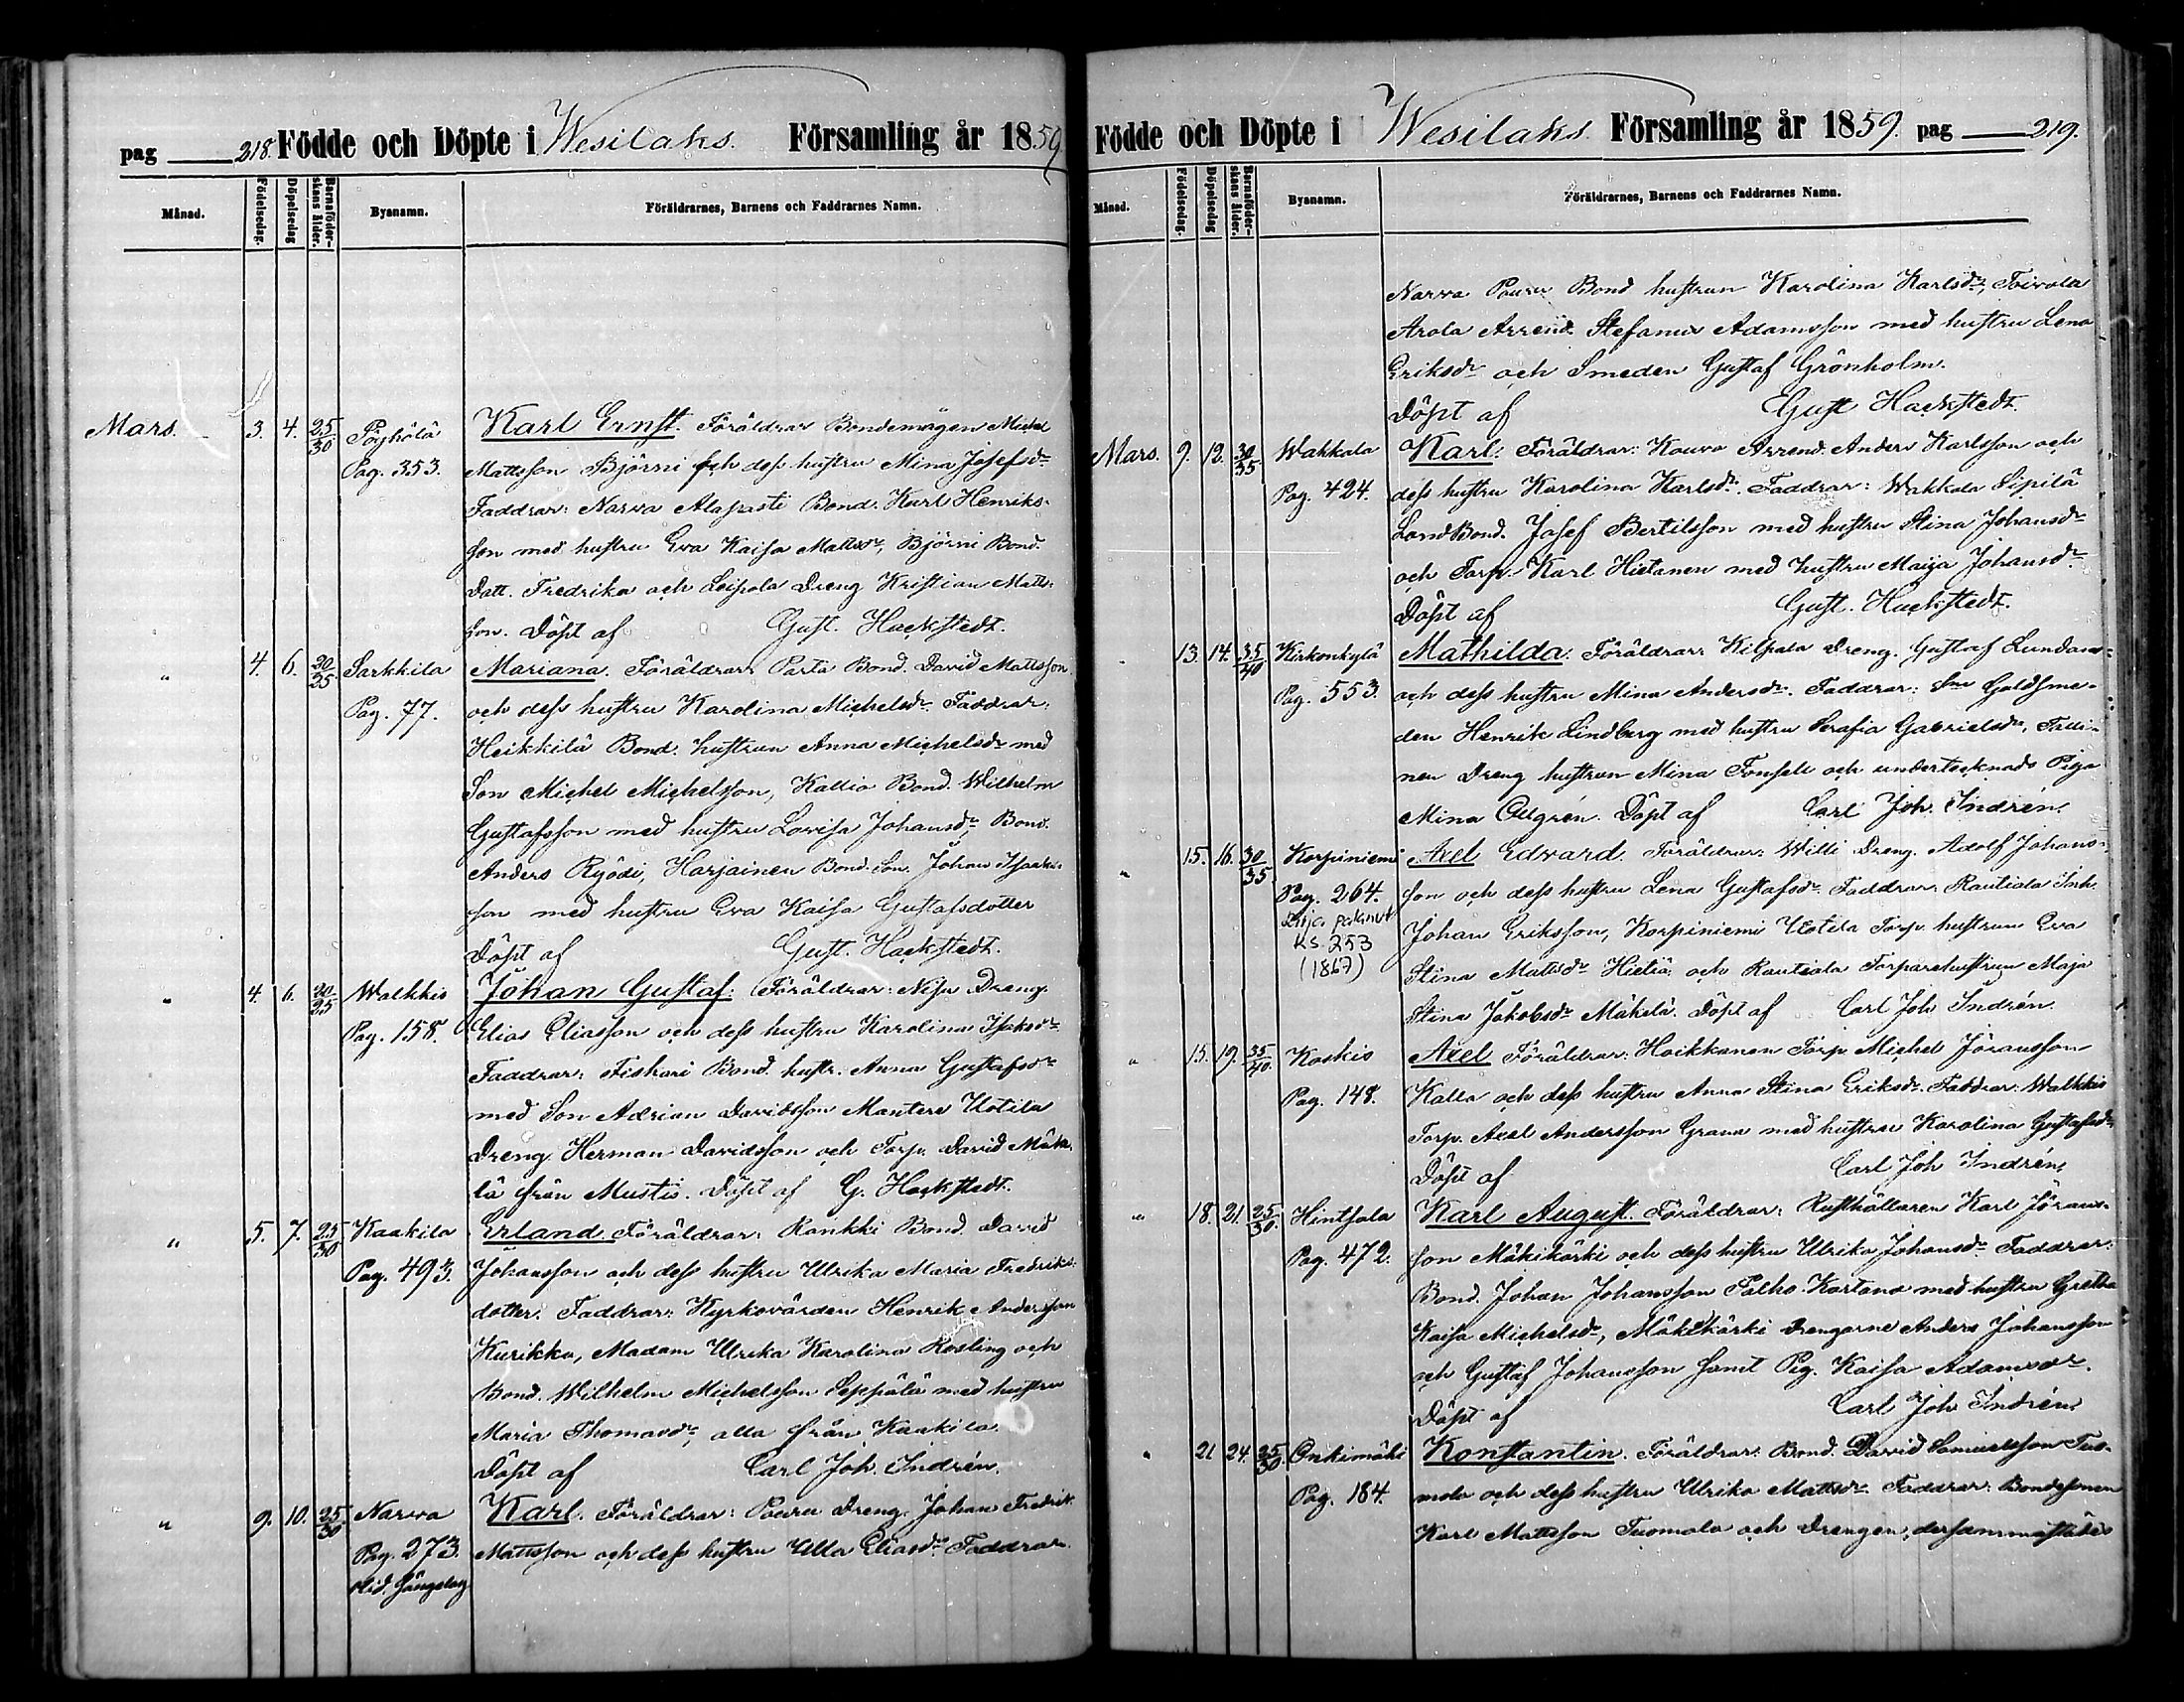 pag 218. Födde och Döpte i Wesilaks. Församling år 1859
Månad. Födelsedag. Döpelsedag Barnaföderskans ålder. Bysnamn. Föräldrarnes, Barnens och Faddrarnes Namn.
Mars. 3. 4. 25/30 Pöyhölä Karl Ernst. Föräldrar Bondemågen Michel
Pag. 353. Mattsson Björni och dess hustru Mina Josefsdr
Faddrar: Narva Alapasti Bond. Karl Henriks-
son med hustru Eva Kaisa Mattsdr, Björni Bond.
Datt. Fredrika och Seipola Dreng Kristian Matts-
son. Döpt af Gust. Hackstedt.
" 4. 6. 30/35 Sarkkila Mariana. Föräldrar: Parta Bond. David Mattsson
Pag. 77. och dess hustru Karolina Michelsdr. Faddrar:
Heikkilä Bond. hustrun Anna Michelsdr med
Son Michel Michelsson, Kallio Bond. Wilhelm
Gustafsson med hustru Lovisa Johansdr Bond.
Anders Ryödi, Harjainen Bond. Son. Johan Isaaks-
son med hustru Eva Kaisa Gustafsdotter
Döpt af Gust. Hackstedt.
" 4. 6. 20/25 Walkkis Johan Gustaf: Föräldrar: Nisu Dreng.
Pag. 158. Elias Eliasson och dess hustru Karolina Isaksdr
Faddrar: Fiskari Bond. hustr. Anna Gustafsdr
med Son Adrian Davidsson Mantere Uotila
Dreng Herman Davidsson och Torp. David Mäke-
lä från Mustis. Döpt af G. Hackstedt.
" 5. 7. 25/30 Kaakila Erland. Föräldrar: Rankki Bond. David
Pag. 493. Johansson och dess hustru Ulrika Maria Fredriks-
dotter. Faddrar: Kyrkovärden Henrik Andersson
Kurikka, Madam Ulrika Karolina Rosling och
Bond. Wilhelm Michelsson Seppälä med hustru
Maria Thomasdr, alla från Kaakila.
Döpt af Carl Joh. Indrén.
" 9. 10. 25/30 Narva Karl. Föräldrar: Pouru Dreng. Johan Fredrik
Pag. 273. Mattsson och dess hustru Ulla Eliasdr Faddrar.
Födde och Döpte i Wesilaks. Församling år 1859. pag 219.
Månad. Födelsedag. Döpelsedag Barnaföderskans ålder. Bysnamn. Föräldrarnes, Barnens och Faddrarnes Namn.
Narva Pouru Bond hustrun Karolina Karlsdr, Toivola
Arola Arrend. Stefanus Adamsson med hustru Lena
Eriksdr och Smeden Gustaf Grönholm.
Döpt af Gust Hackstedt.
Mars. 9. 12. 30/35 Wakkala Karl: Föräldrar: Kouvo Arrend. Anders Karlsson och
Pag. 424. dess hustru Karolina Karlsdr. Faddrar: Wakkala Sipilä
LandBond. Josef Bertilsson med hustru Stina Johansdr
och Torp. Karl Hietanen med hustru Maija Johansdr.
Döpt af Gust. Hackstedt.
" 13. 14. 35/40 Kirkonkylä Mathilda. Föräldrar: Kilpala Dreng. Gustaf Lundan-
Pag. 553. och dess hustru Mina Andersdr. Faddrar: Goldsme-
den Henrik Lindberg med hustru Serafia Gabrielsdr,
nen Dreng hustrun Mina Tonsell och undertecknads Piga
Mina Döpt af Carl Joh. Indrén.
" 15. 16. 30/35 Korpiniemi Axel Edvard. Föräldrar: Willi Dreng. Adolf Johans-
Pag. 264. son och dess hustru Lena Gustafsdr Faddrar: Rautiala Inh.
Ks. 253 Johan Eriksson, Korpiniemi Uotila Torp. hustrun Eva
(1867) Stina Mattsdr Hietia och Rautiala Torparehustrun Maja
Stina Jakobsdr Mäkelä. Döpt af Carl Joh Indrén.
" 15. 19. 35/40 Koskis Axel Föräldrar: Hoikkanen Torp Michel Jöransson
Pag. 148. Kalla och dess hustru Anna Stina Eriksdr. Faddrar: Walkkis
Torp. Axel Andersson Grana med hustru Karolina Gustafsdr
Döpt af Carl Joh Indrén.
" 18. 21. 25/30. Hintsala Karl August. Föräldrar: Rusthållaren Karl Jörans-
Pag. 472. son Mäkikärki och dess hustru Ulrika Johansdr Faddrar:
Bond. Johan Johansson Palho-Kartano med hustru Gretha
Kaisa Michelsdr, Mäkikärki drengarne Anders Johansson
och Gustaf Johansson samt Pig. Kaisa Adamsdr.
Döpt af Carl Joh Indrén.
" 21 24. 25/30. Onkimäki Konstantin. Föräldrar: Bond. David Samuelsson Tuo-
Pag. 184. mola och dess hustru Ulrika Mattsdr Faddrar: Bondesonen
Karl Mattsson Tuomola och Drengen dersammastädes